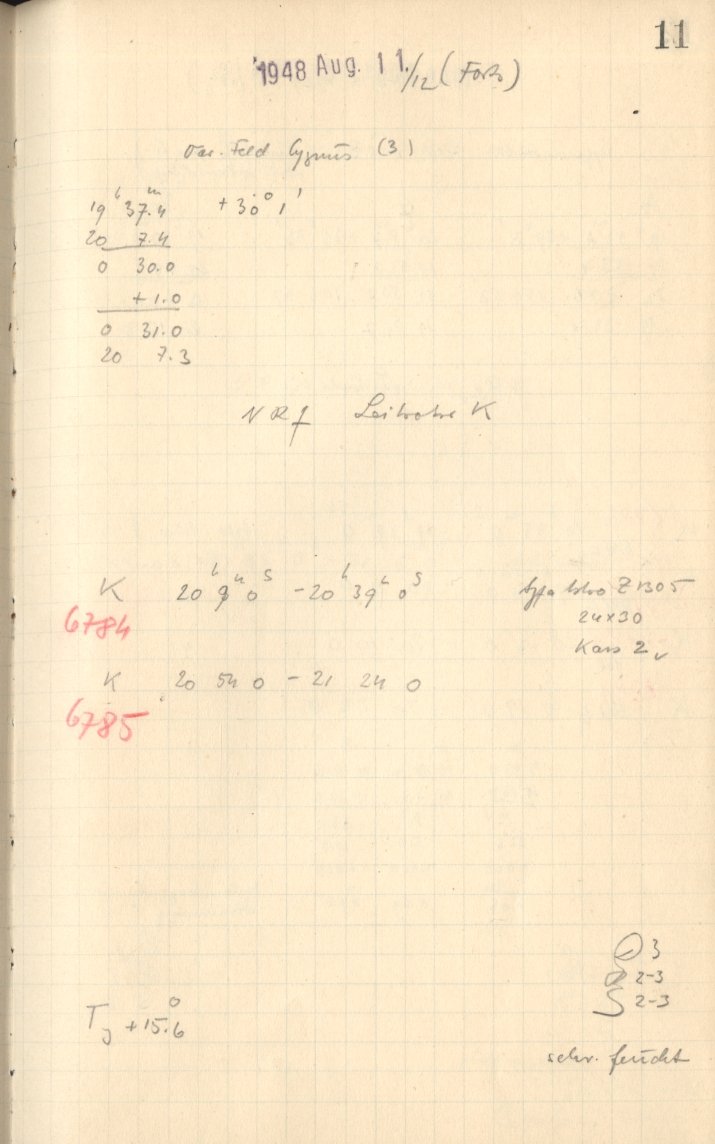 11
1948 Aug. 11./12 (Forts)
Var. Feld Cygnus (3)
19ʰ 37.4ᵐ +30° 1'
20 7.4
0 30.0
+1.0
0 31.0
20 7.3
Leitrohr K
K 20ʰ 9ᵐ 0ˢ - 20ʰ 39ᵐ 0ˢ Agfa Astro Z 1305
6784 24x30
Kass 2
K 20 54 0 - 21 24 0
6785
3
2-3
2-3
T +15.6°
sehr feucht